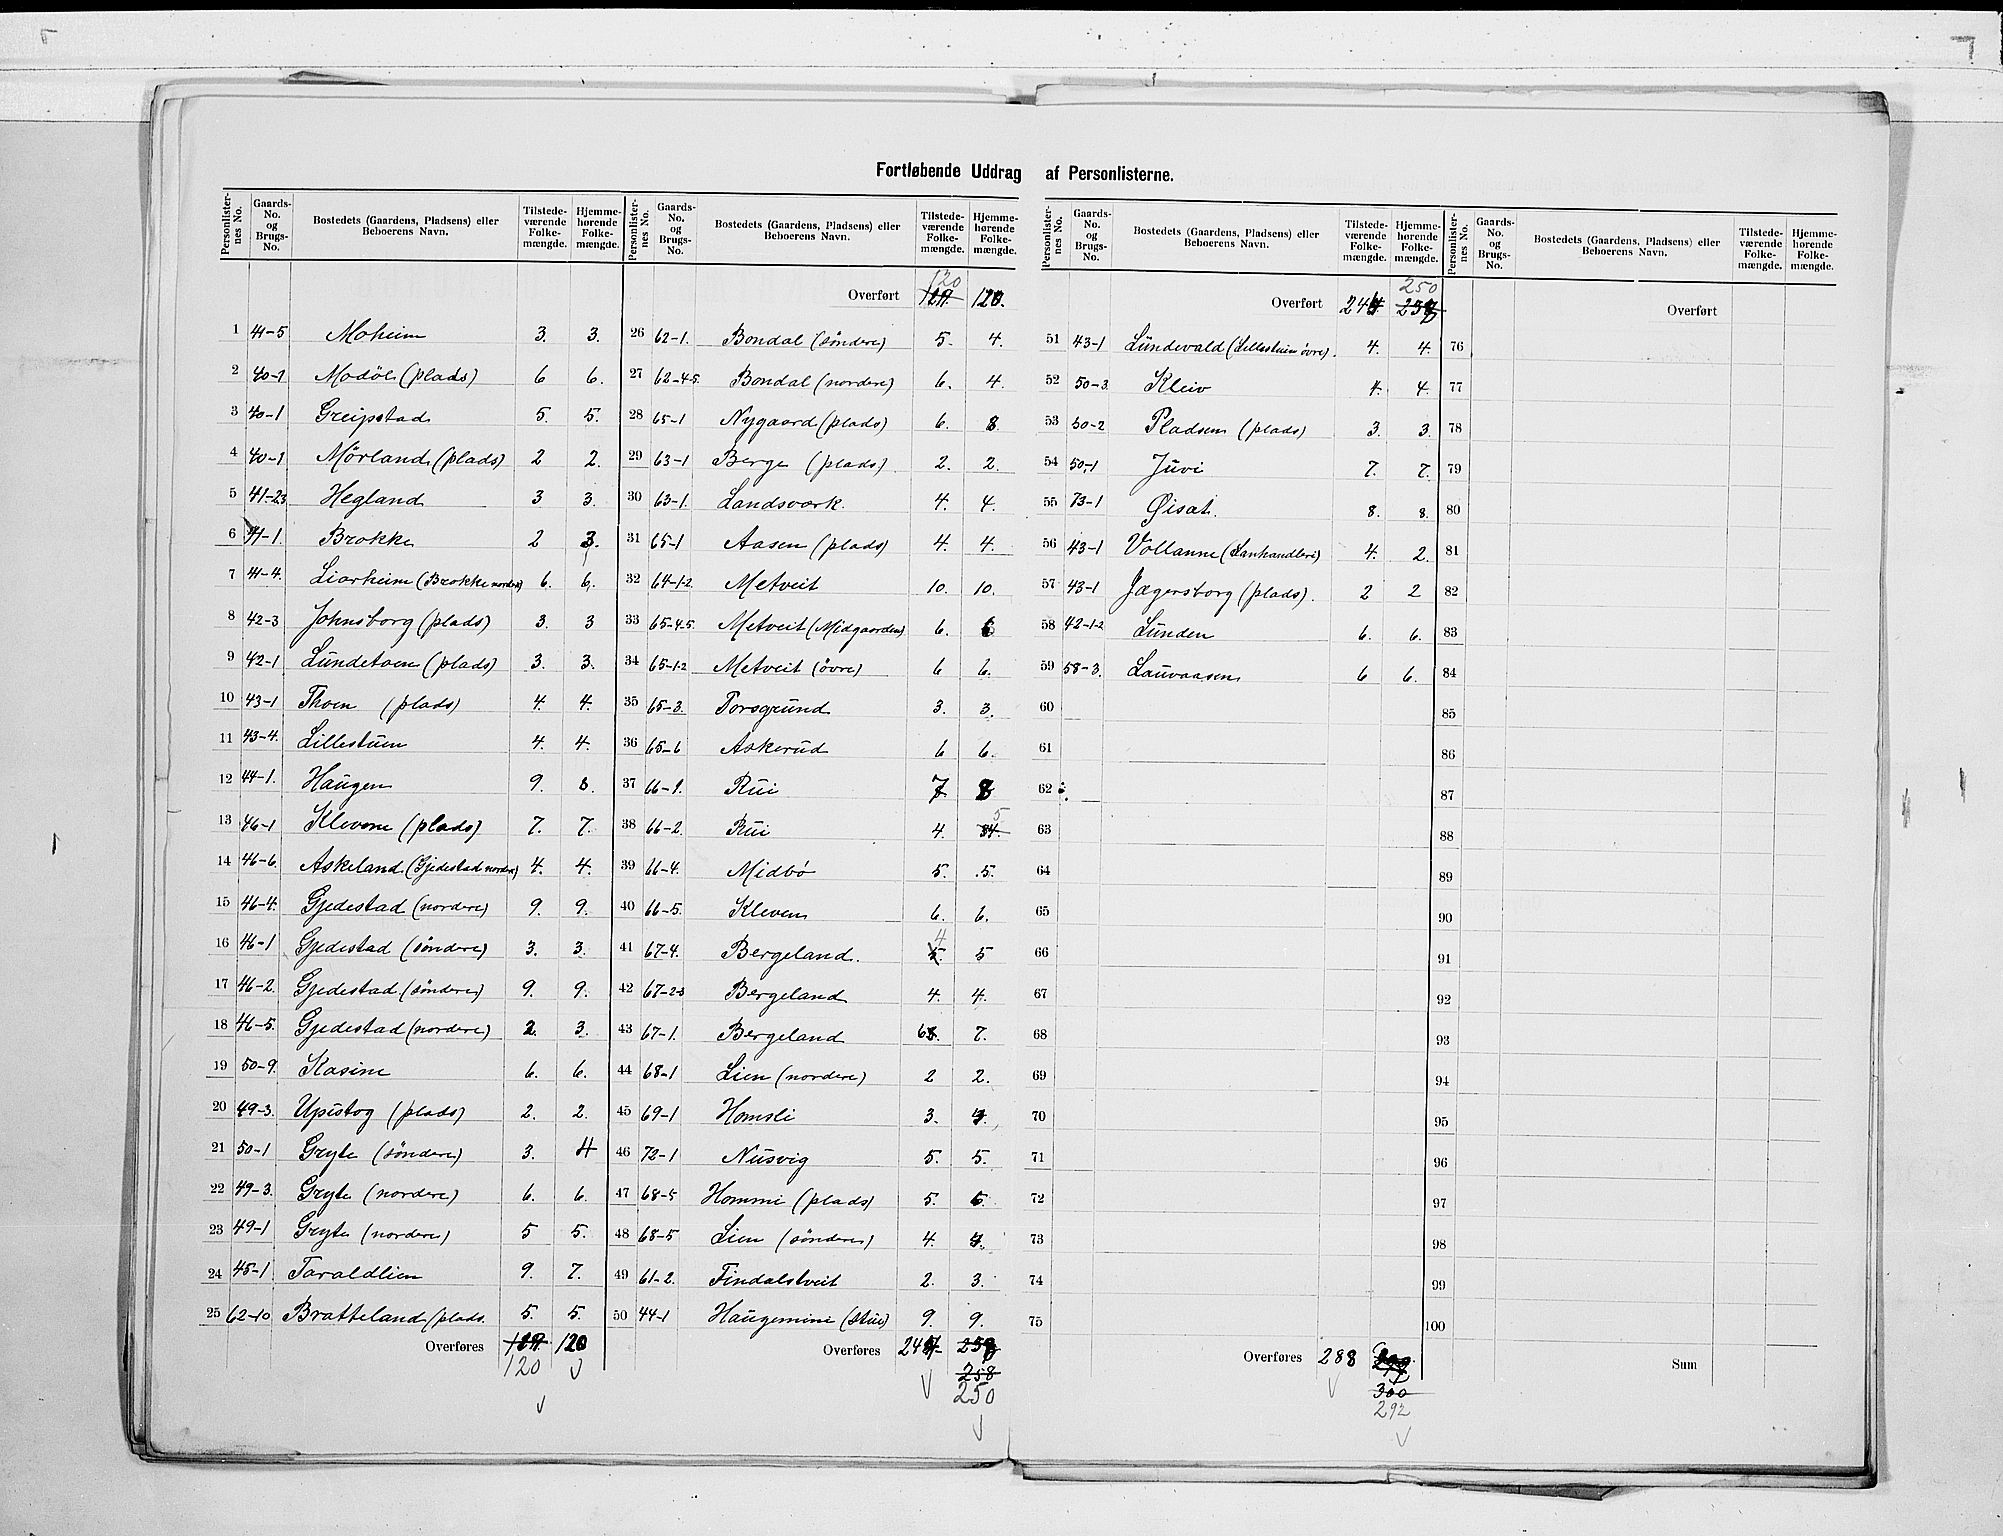 Fortløbende Uddrag af Personlisterne.
Personlister-nes No. | Gaards-No. og Brugs-No. | Bostedets (Gaardens, Pladsens) eller Beboerens Navn. | Tilstede-værende Folke-mængde. | Hjemme-hørende Folke-mængde.
1 41-5 Moheim 3. 3.
2 40-1 Modöl (plads) 6 6.
3 40-1 Greipstad 5. 5.
4 40-1 Mörland (plads) 2 2.
5 41-23 Hegland 3 3.
6 41-1. Brokke 2 3.
7 41-4. Liarheim (Brokke nordre) 6. 6.
8 42-3 Johnsborg (plads) 3. 3
9 42-1 Lundetoen (plads) 3. 3.
10 43-1 Thoen (plads) 4. 4.
11 43-4. Lillestuen 4. 4.
12 44-1. Haugen 9. 8.
13 46-1 Klevene (plads) 7. 7.
14 46-6. Askeland (Gjedestad nordre) 4. 4.
15 46-4. Gjedestad (nordere) 9. 9.
16 46-1 Gjedestad (söndere) 3. 3.
17 46-2. Gjedestad (söndere) 9. 9.
18 46-5. Gjedestad (nordere) 2. 3.
19 50-9. Kasine 6. 6.
20 49-3. Upistog (plads) 2. 2.
21 50-1 Gryte (söndere) 3. 4
22 49-3. Gryte (nordere) 6. 6.
23 49-1 Gryte (nordere) 5 5.
24 45-1 Taraldlien 9. 7.
25 62-10 Bratteland (plads. 5. 5.
Overføres 120
120
Personlister-nes No. | Gaards-No. og Brugs-No. | Bostedets (Gaardens, Pladsens) eller Beboerens Navn. | Tilstede-værende Folke-mængde. | Hjemme-hørende Folke-mængde.
120
Overført 120.
26 62-1. Bondal (söndere) 5. 4.
27 62-4-5. Bondal (nordere) 6. 4.
28 65-1 Nygaard (plads) 6. 8.
29 63-1 Berge (plads) 2. 2.
30 63-1. Landsværk. 4. 4.
31 65-1 Aasen (plads) 4. 4.
32 64-1-2. Metveit 10. 10.
33 65-4-5. Metveit (Midgaarden) 6. 6
34 65-1-2 Metveit (övre) 6 6.
35 65-3. Porsgrund 3. 3.
36 65-6 Askerud 6 6.
37 66-1. Rui 7 8
38 66-2. Rui 4. 5
39 66-4. Midbö 5. 5.
40 66-5. Kleven 6. 6.
41 67-4. Bergeland. 4 5
42 67-2-3 Bergeland 4. 4.
43 67-1. Bergeland 6 7.
44 68-1 Lien (nordere) 2 2.
45 69-1 Homsli 3.
46 72-1 Nusvig 5. 5.
47 68-5 Hommi (plads) 5. 6.
48 68-5 Lien (söndere) 4.
49 61-2. Findalstveit 2. 3.
50 44-1 Haugemine (stue) 9. 9.
Overføres 244
258
250
Personlister-nes No. | Gaards-No. og Brugs-No. | Bostedets (Gaardens, Pladsens) eller Beboerens Navn. | Tilstede-værende Folke-mængde. | Hjemme-hørende Folke-mængde.
250
Overført 244
51 43-1 Lundevald (Lillestuen övre). 4. 4.
52 50-3. Kleiv 4. 4.
53 50-2 Pladsen (plads) 3. 3.
54 50-1 Juvi 7. 7.
55 73-1 Øisæt. 8. 8.
56 43-1 Vollanne (Lanhandleri) 4. 2.
57 43-1 Jægersborg (plads). 2 2
58 42-1-2 Lunden 6. 6.
59 58-3. Lauvaasen 6 6.
60
61
62
63
64
65
66
67
68
69
70
71
72
73
74
75
Overføres 288
300
292
Personlister-nes No. | Gaards-No. og Brugs-No. | Bostedets (Gaardens, Pladsens) eller Beboerens Navn. | Tilstede-værende Folke-mængde. | Hjemme-hørende Folke-mængde.
Overført
76
77
78
79
80
81
82
83
84
85
86
87
88
89
90
91
92
93
94
95
96
97
98
99
100
Sum